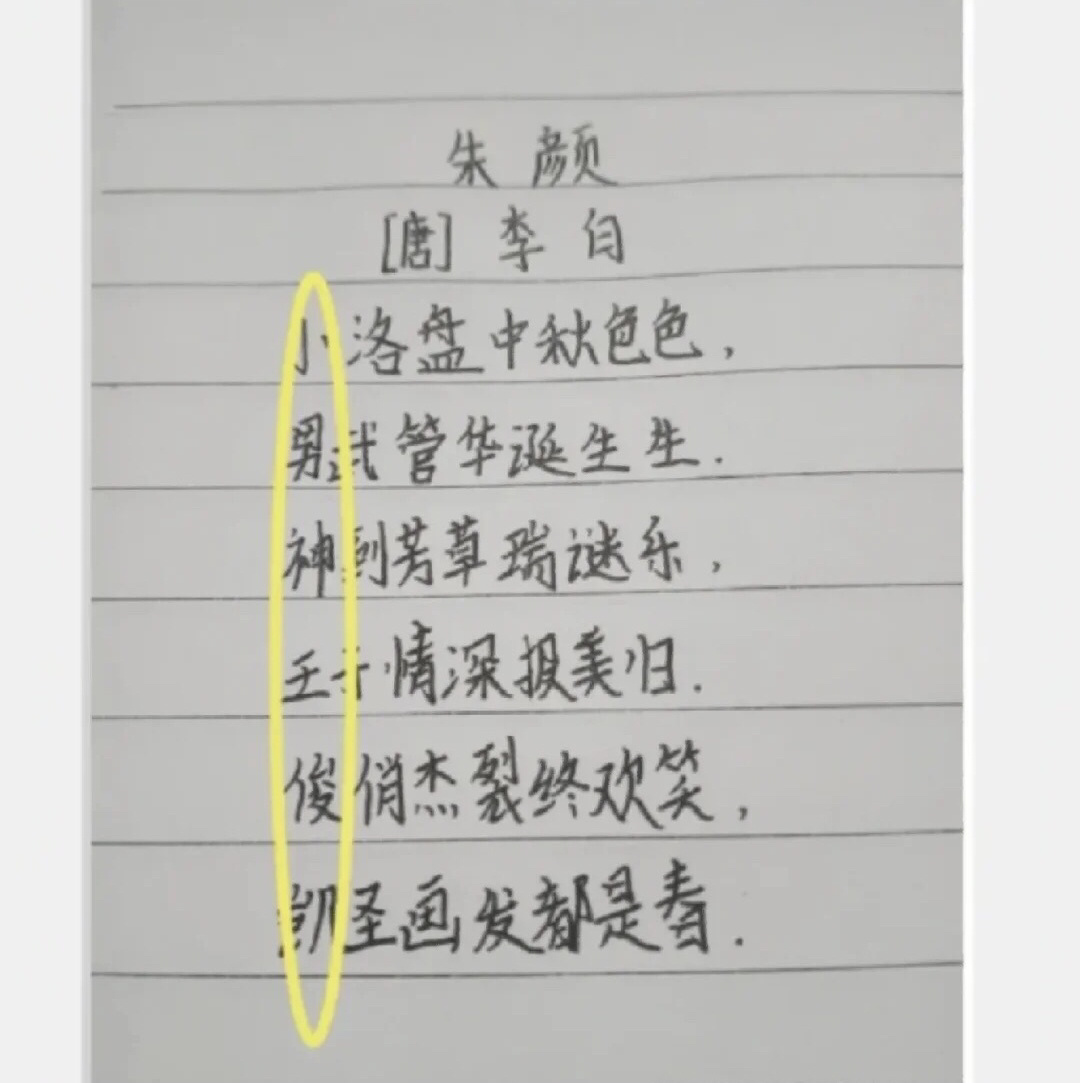 朱颜
[唐] 李白
小洛盘中秋色色，
男武管华诞生生.
神到芳草瑞谜乐，
王子情深报美归.
俊俏杰裂终欢笑，
凯圣画发都是春.